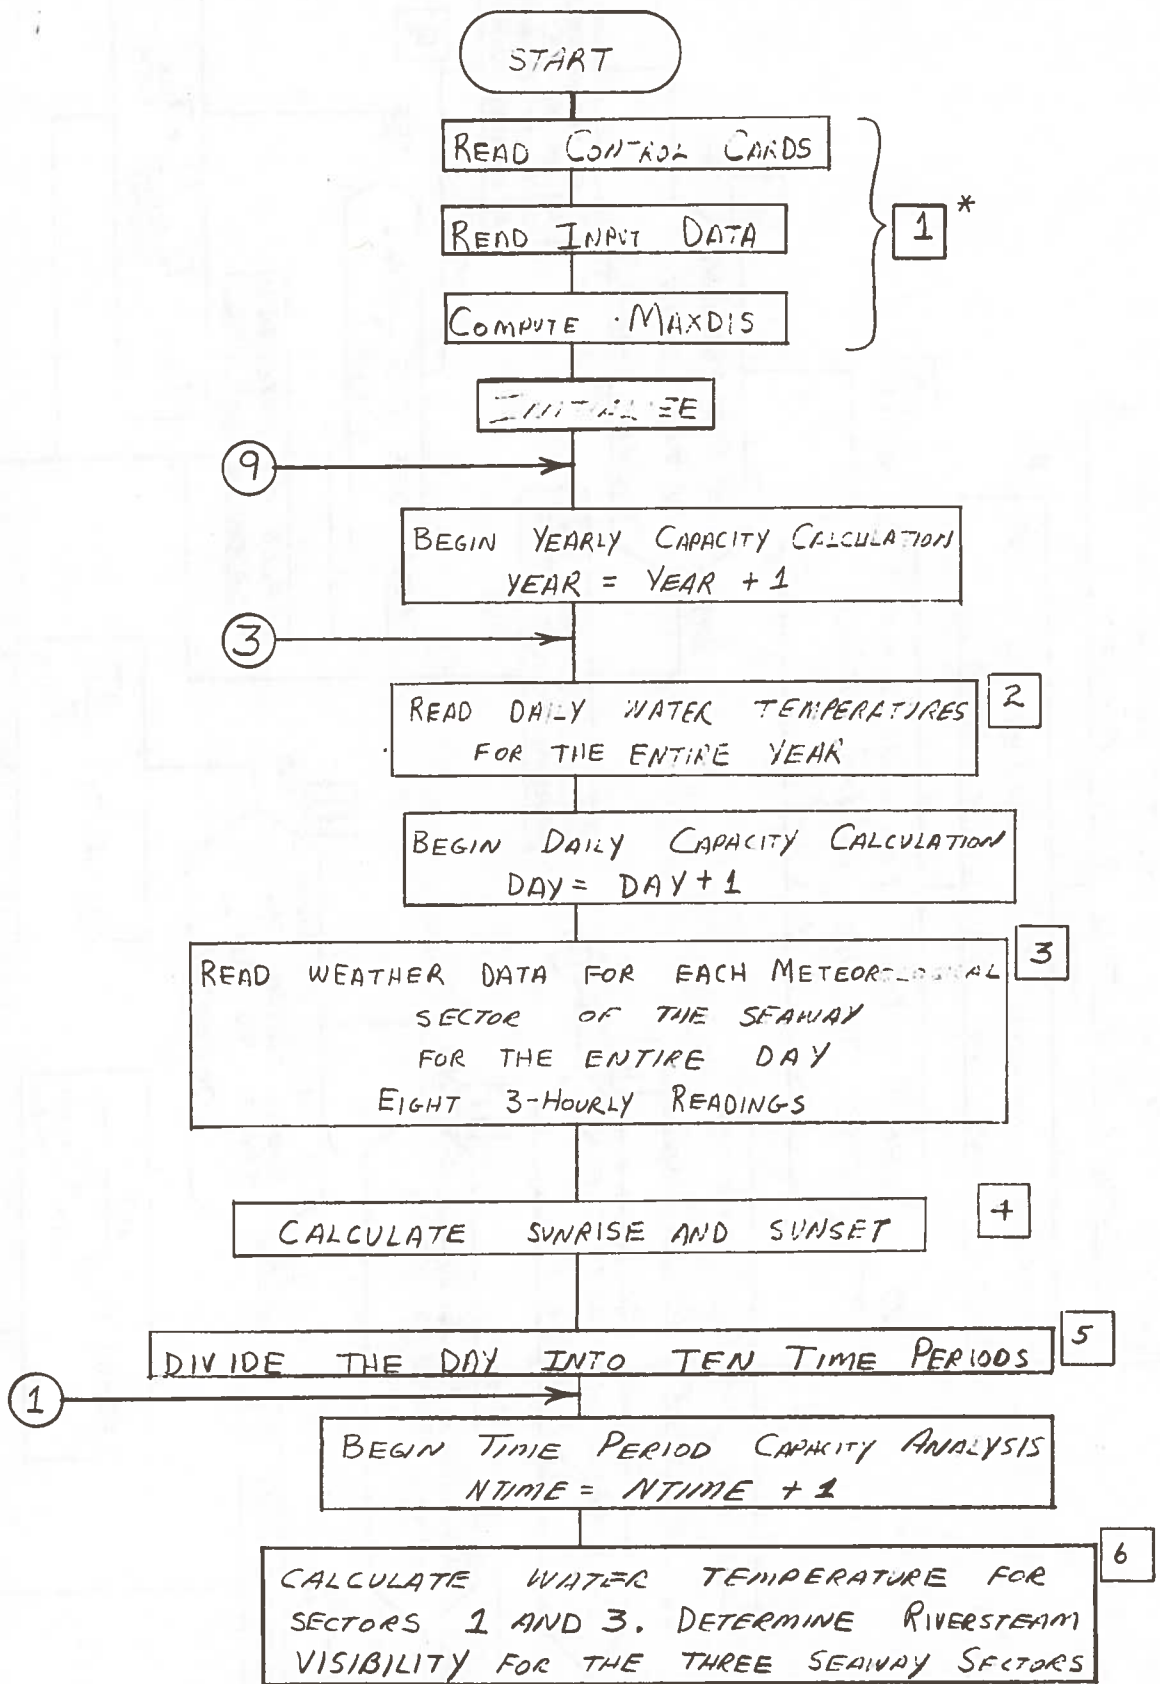 START
READ CONTROL CARDS
READ INPUT DATA
1 *
COMPUTE · MAXDIS
INITIALIZE
9
BEGIN YEARLY CAPACITY CALCULATION
YEAR = YEAR + 1
3
READ DAILY WATER TEMPERATURES
2
FOR THE ENTIRE YEAR
BEGIN DAILY CAPACITY CALCULATION
DAY = DAY + 1
READ WEATHER DATA FOR EACH METEOROLOGICAL
3
SECTOR OF THE SEAWAY
FOR THE ENTIRE DAY
EIGHT 3-HOURLY READINGS
CALCULATE SUNRISE AND SUNSET
4
DIVIDE THE DAY INTO TEN TIME PERIODS
5
1
BEGIN TIME PERIOD CAPACITY ANALYSIS
NTIME = NTIME + 1
6
CALCULATE WATER TEMPERATURE FOR
SECTORS 1 AND 3. DETERMINE RIVERSTEAM
VISIBILITY FOR THE THREE SEAWAY SECTORS